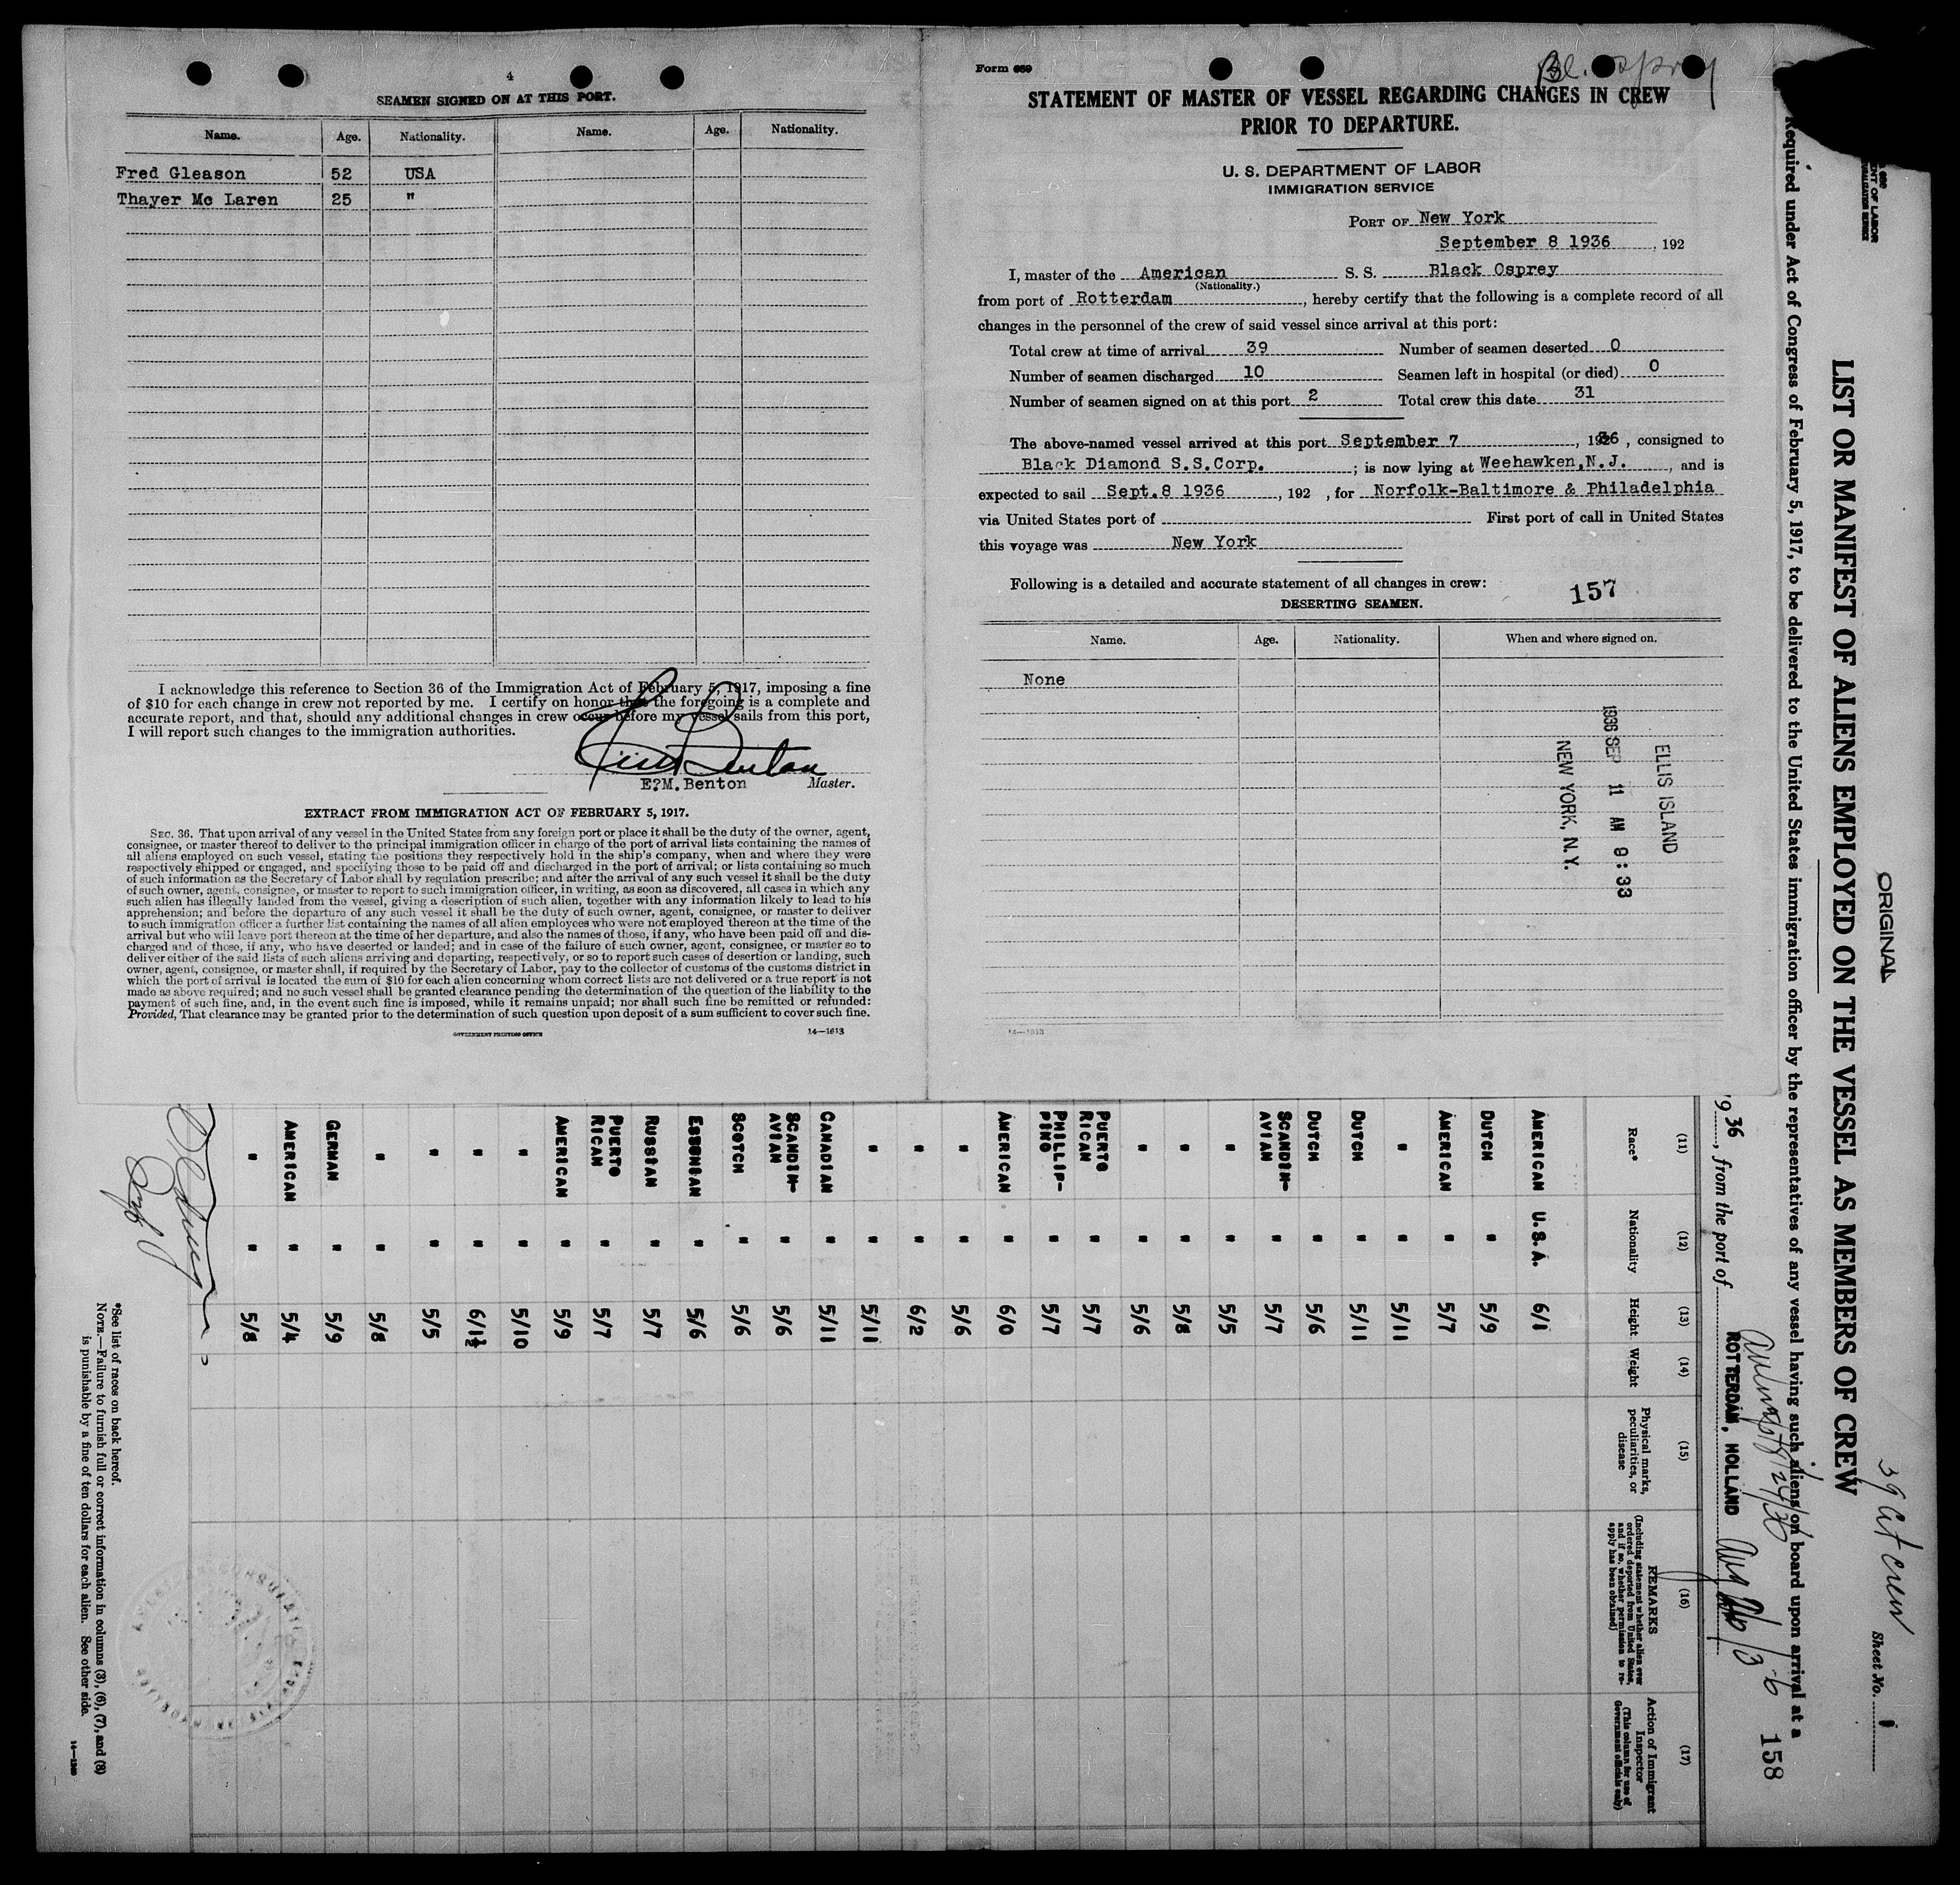 4
SEAMEN SIGNED ON AT THIS PORT.
Name. Age. Nationality. Name. Age. Nationality.
Fred Gleason 52 USA
Thayer Mc Laren 25 "
I acknowledge this reference to Section 36 of the Immigration Act of February 5, 1917, imposing a fine
of $10 for each change in crew not reported by me. I certify on honor that the foregoing is a complete and
accurate report, and that, should any additional changes in crew occur before my vessel sails from this port,
I will report such changes to the immigration authorities.
E?M. Benton Master.
EXTRACT FROM IMMIGRATION ACT OF FEBRUARY 5, 1917.
SEC. 36. That upon arrival of any vessel in the United States from any foreign port or place it shall be the duty of the owner, agent,
consignee, or master thereof to deliver to the principal immigration officer in charge of the port of arrival lists containing the names of
all aliens employed on such vessel, stating the positions they respectively hold in the ship's company, when and where they were
respectively shipped or engaged, and specifying those to be paid off and discharged in the port of arrival; or lists containing so much
of such information as the Secretary of Labor shall by regulation prescribe; and after the arrival of any such vessel it shall be the duty
of such owner, agent, consignee, or master to report to such immigration officer, in writing, as soon as discovered, all cases in which any
such alien has illegally landed from the vessel, giving a description of such alien, together with any information likely to lead to his
apprehension; and before the departure of any such vessel it shall be the duty of such owner, agent, consignee, or master to deliver
to such immigration officer a further list containing the names of all alien employees who were not employed thereon at the time of the
arrival but who will leave port thereon at the time of her departure, and also the names of those, if any, who have been paid off and dis-
charged and of those, if any, who have deserted or landed; and in case of the failure of such owner, agent, consignee, or master so to
deliver either of the said lists of such aliens arriving and departing, respectively, or so to report such cases of desertion or landing, such
owner, agent, consignee, or master shall, if required by the Secretary of Labor, pay to the collector of customs of the customs district in
which the port of arrival is located the sum of $10 for each alien concerning whom correct lists are not delivered or a true report is not
made as above required; and no such vessel shall be granted clearance pending the determination of the question of the liability to the
payment of such fine, and, in the event such fine is imposed, while it remains unpaid; nor shall such fine be remitted or refunded:
Provided, That clearance may be granted prior to the determination of such question upon deposit of a sum sufficient to cover such fine.
GOVERNMENT PRINTING OFFICE 14—1613
Form 689
Bl. Osprey
STATEMENT OF MASTER OF VESSEL REGARDING CHANGES IN CREW
PRIOR TO DEPARTURE.
U. S. DEPARTMENT OF LABOR
IMMIGRATION SERVICE
PORT OF New York
September 8 1936, 192
I, master of the American S. S. Black Osprey
(Nationality.)
from port of Rotterdam, hereby certify that the following is a complete record of all
changes in the personnel of the crew of said vessel since arrival at this port:
Total crew at time of arrival 39 Number of seamen deserted 0
Number of seamen discharged 10 Seamen left in hospital (or died) 0
Number of seamen signed on at this port 2 Total crew this date 31
The above-named vessel arrived at this port September 7, 1936, consigned to
Black Diamond S.S.Corp.; is now lying at Weehawken,N.J., and is
expected to sail Sept.8 1936, 192 , for Norfolk-Baltimore & Philadelphia
via United States port of First port of call in United States
this voyage was New York
Following is a detailed and accurate statement of all changes in crew: 157
DESERTING SEAMEN.
Name. Age. Nationality. When and where signed on.
None
ELLIS ISLAND
1936 SEP 11 AM 9:33
NEW YORK, N.Y.
14—1613
ORIGINAL
39 at crew
Sheet No. 1
LIST OR MANIFEST OF ALIENS EMPLOYED ON THE VESSEL AS MEMBERS OF CREW
Required under Act of Congress of February 5, 1917, to be delivered to the United States immigration officer by the representatives of any vessel having such aliens on board upon arrival at a
158
1936, from the port of ROTTERDAM, HOLLAND
(11) (12) (13) (14) (15) (16) (17)
Race* Nationality Height Weight Physical marks, peculiarities, or disease REMARKS (Including statement whether alien ever ordered deported from United States, and if so, whether permission to reapply has been obtained) Action of Immigrant Inspector (This column for use of Government officials only)
AMERICAN U.S.A. 6/1
DUTCH " 5/9
AMERICAN " 5/7
" " 5/11
DUTCH " 5/11
DUTCH " 5/6
SCANDIN-AVIAN " 5/7
" " 5/5
" " 5/8
" " 5/6
PUERTO RICAN " 5/7
PHILLIP-PINO " 5/7
AMERICAN " 6/0
" " 5/6
" " 6/2
" " 5/11
CANADIAN " 5/11
SCANDIN-AVIAN " 5/6
SCOTCH " 5/6
ESTONIAN " 5/6
RUSSIAN " 5/7
PUERTO RICAN " 5/7
AMERICAN " 5/9
" " 5/10
" " 6/1½
" " 5/5
" " 5/8
GERMAN " 5/9
AMERICAN " 5/4
" " 5/8
*See list of races on back hereof.
NOTE.—Failure to furnish full or correct information in columns (3), (6), (7), and (8)
is punishable by a fine of ten dollars for each alien. See other side.